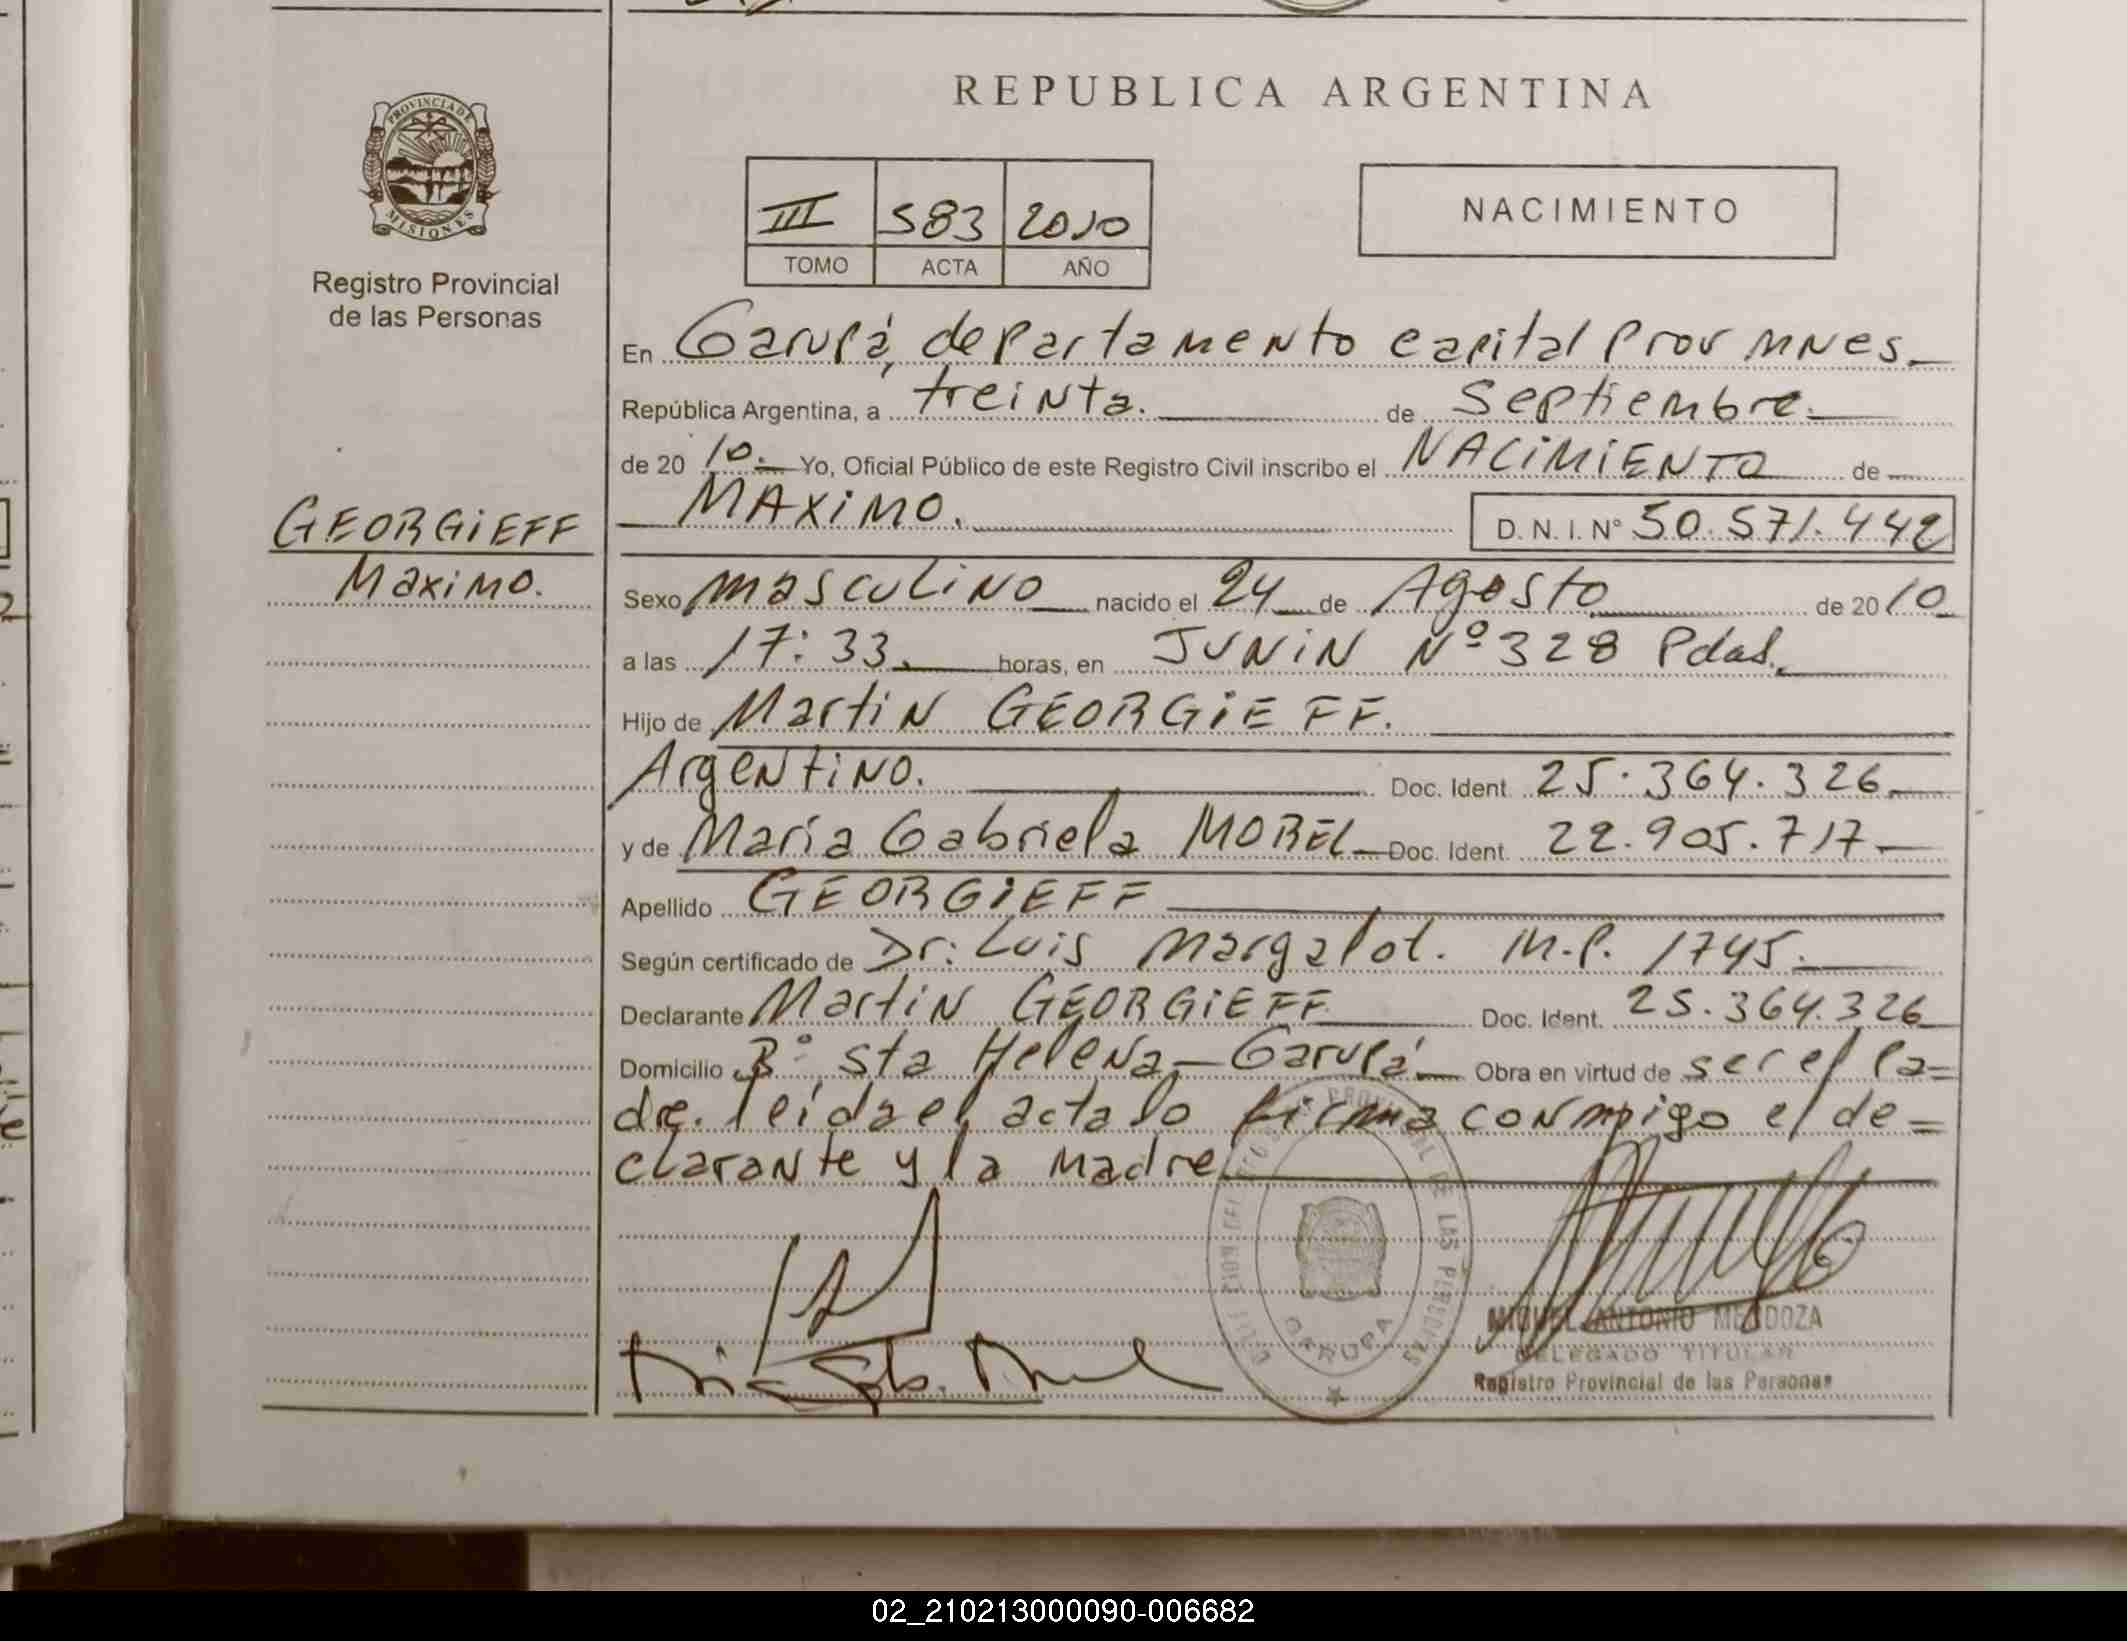 PROVINCIA DE
MISIONES
Registro Provincial
de las Personas
GEORGIEFF
Maximo.
REPUBLICA ARGENTINA
III 583 2010
TOMO ACTA AÑO
NACIMIENTO
En Garupá, departamento capital Prov MNES.
República Argentina, a treinta. de septiembre.
de 20 10. Yo, Oficial Público de este Registro Civil inscribo el NACIMIENTO de
MAXIMO. D. N. I. Nº 50.571.442
Sexo masculino nacido el 24 de Agosto de 20 10
a las 17:33. horas, en JUNIN Nº 328 Pdas.
Hijo de Martin GEORGIEFF.
Argentino. Doc. Ident. 25.364.326.
y de Maria Gabriela MOREL Doc. Ident. 22.905.717
Apellido GEORGIEFF
Según certificado de Dr: Luis Margalot. M.P. 1745.
Declarante Martin GEORGIEFF Doc. Ident. 25.364.326
Domicilio Bº Sta Helena - Garupá. Obra en virtud de ser el pa=
dre. leida el acta lo firma conmigo el de=
clarante y la madre
DE LAS PERSONAS
GARUPA
MIGUEL ANTONIO MENDOZA
DELEGADO TITULAR
Registro Provincial de las Personas
02_210213000090-006682